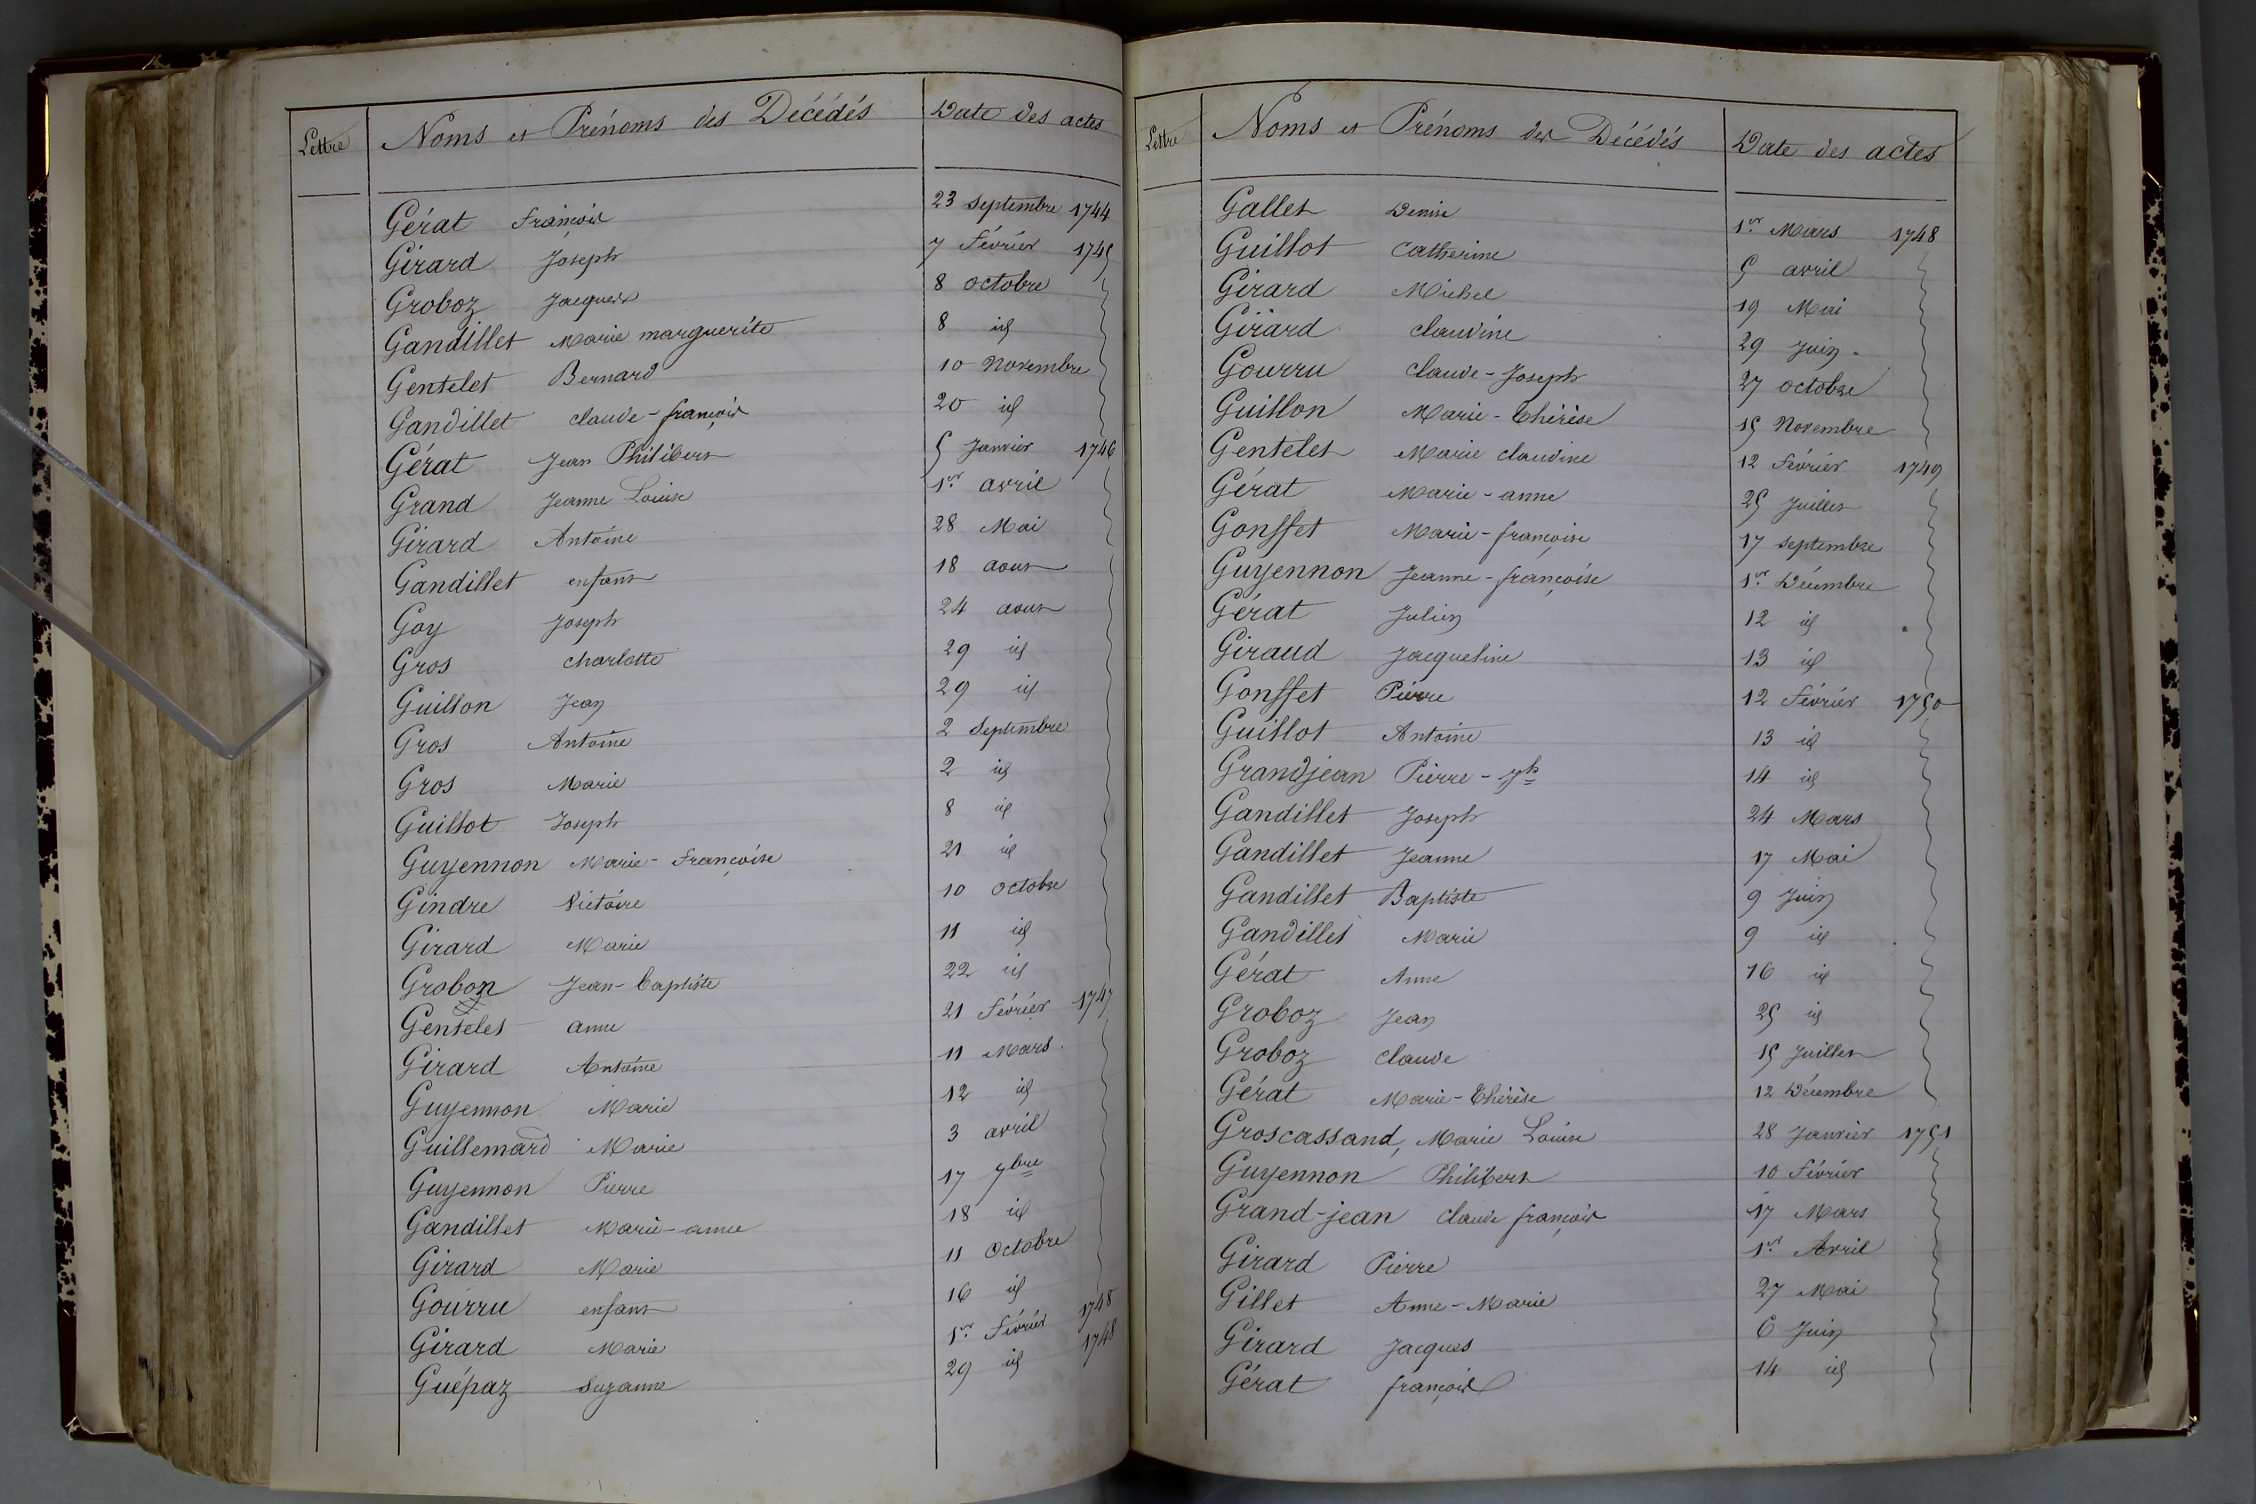 Lettre Noms et Prénoms des Décédés Date des actes
Gérat François 23 septembre 1744
Girard Joseph 7 Février 1745
Groboz Jacques 8 octobre
Gandillet Marie marguerite 8 id
Gentelet Bernard 10 Novembre
Gandillet claude-françois 20 id
Gérat Jean Philibert 5 Janvier 1746
Grand Jeanne Louise 1er avril
Girard Antoine 28 Mai
Gandillet enfant 18 aout
Goy Joseph 24 aout
Gros charlotte 29 id
Guillon Jean 29 id
Gros Antoine 2 Septembre
Gros Marie 2 id
Guillot Joseph 8 id
Guyennon Marie-Françoise 21 id
Gindre Victoire 10 octobre
Girard Marie 11 id
Grobon Jean-baptiste 22 id
Gentelet anne 21 Février 1747
Girard Antoine 11 Mars
Guyennon Marie 12 id
Guillemard Marie 3 avril
Guyennon Pierre 17 7bre
Gandillet Marie-anne 18 id
Girard Marie 11 Octobre
Gourru enfant 16 id
Girard Marie 1er Février 1748
Guépaz Suzanne 29 id 1748
Lettre Noms et Prénoms des Décédés Date des actes
Gallet Denise 1er Mars 1748
Guillot Catherine 5 avril
Girard Michel 19 Mai
Girard claudine 29 Juin
Gourru claude-Joseph 27 octobre
Guillon Marie-Thérèse 15 Novembre
Gentelet Marie claudine 12 Février 1749
Gérat Marie-anne 25 Juillet
Gonffet Marie-françoise 17 septembre
Guyennon Jeanne-françoise 1er Décembre
Gérat Julien 12 id
Giraud Jacqueline 13 id
Gonffet Pierre 12 Février 1750
Guillot Antoine 13 id
Grandjean Pierre-Jh 14 id
Gandillet Joseph 24 Mars
Gandillet Jeanne 17 Mai
Gandillet Baptiste 9 Juin
Gandillet Marie 9 id
Gérat Anne 16 id
Groboz Jean 25 id
Groboz Claude 15 Juillet
Gérat Marie-Thérèse 12 Décembre
Groscassand, Marie Louise 28 Janvier 1751
Guyennon Philibert 10 Février
Grand-jean Claude françois 17 Mars
Girard Pierre 1er Avril
Gillet Anne-Marie 27 Mai
Girard Jacques 6 Juin
Gérat françois 14 id